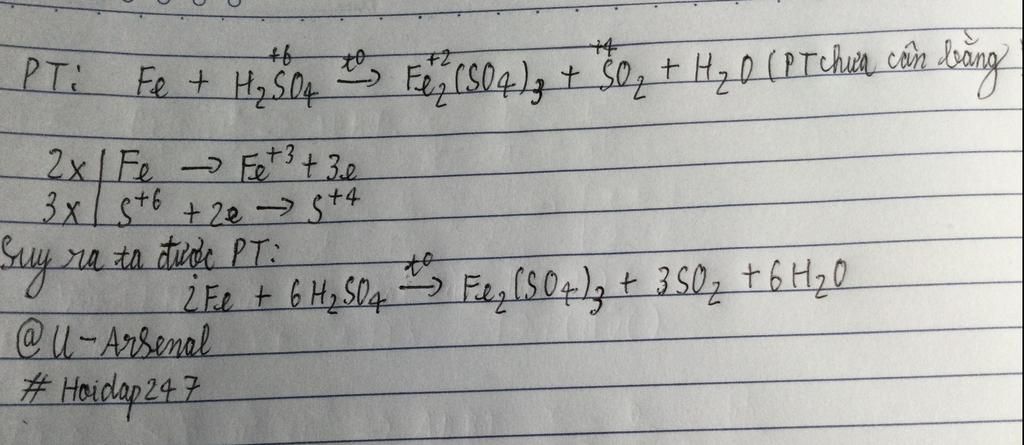 PT: Fe + H₂S⁺⁶O₄ t⁰→ Fe⁺²₂(SO₄)₃ + S⁺⁴O₂ + H₂O (PT chưa cân bằng)
2x | Fe → Fe⁺³ + 3e
3x | S⁺⁶ + 2e → S⁺⁴
Suy ra ta được PT:
2Fe + 6H₂SO₄ t⁰→ Fe₂(SO₄)₃ + 3SO₂ + 6H₂O
@U-Arsenal
# Hoidap247